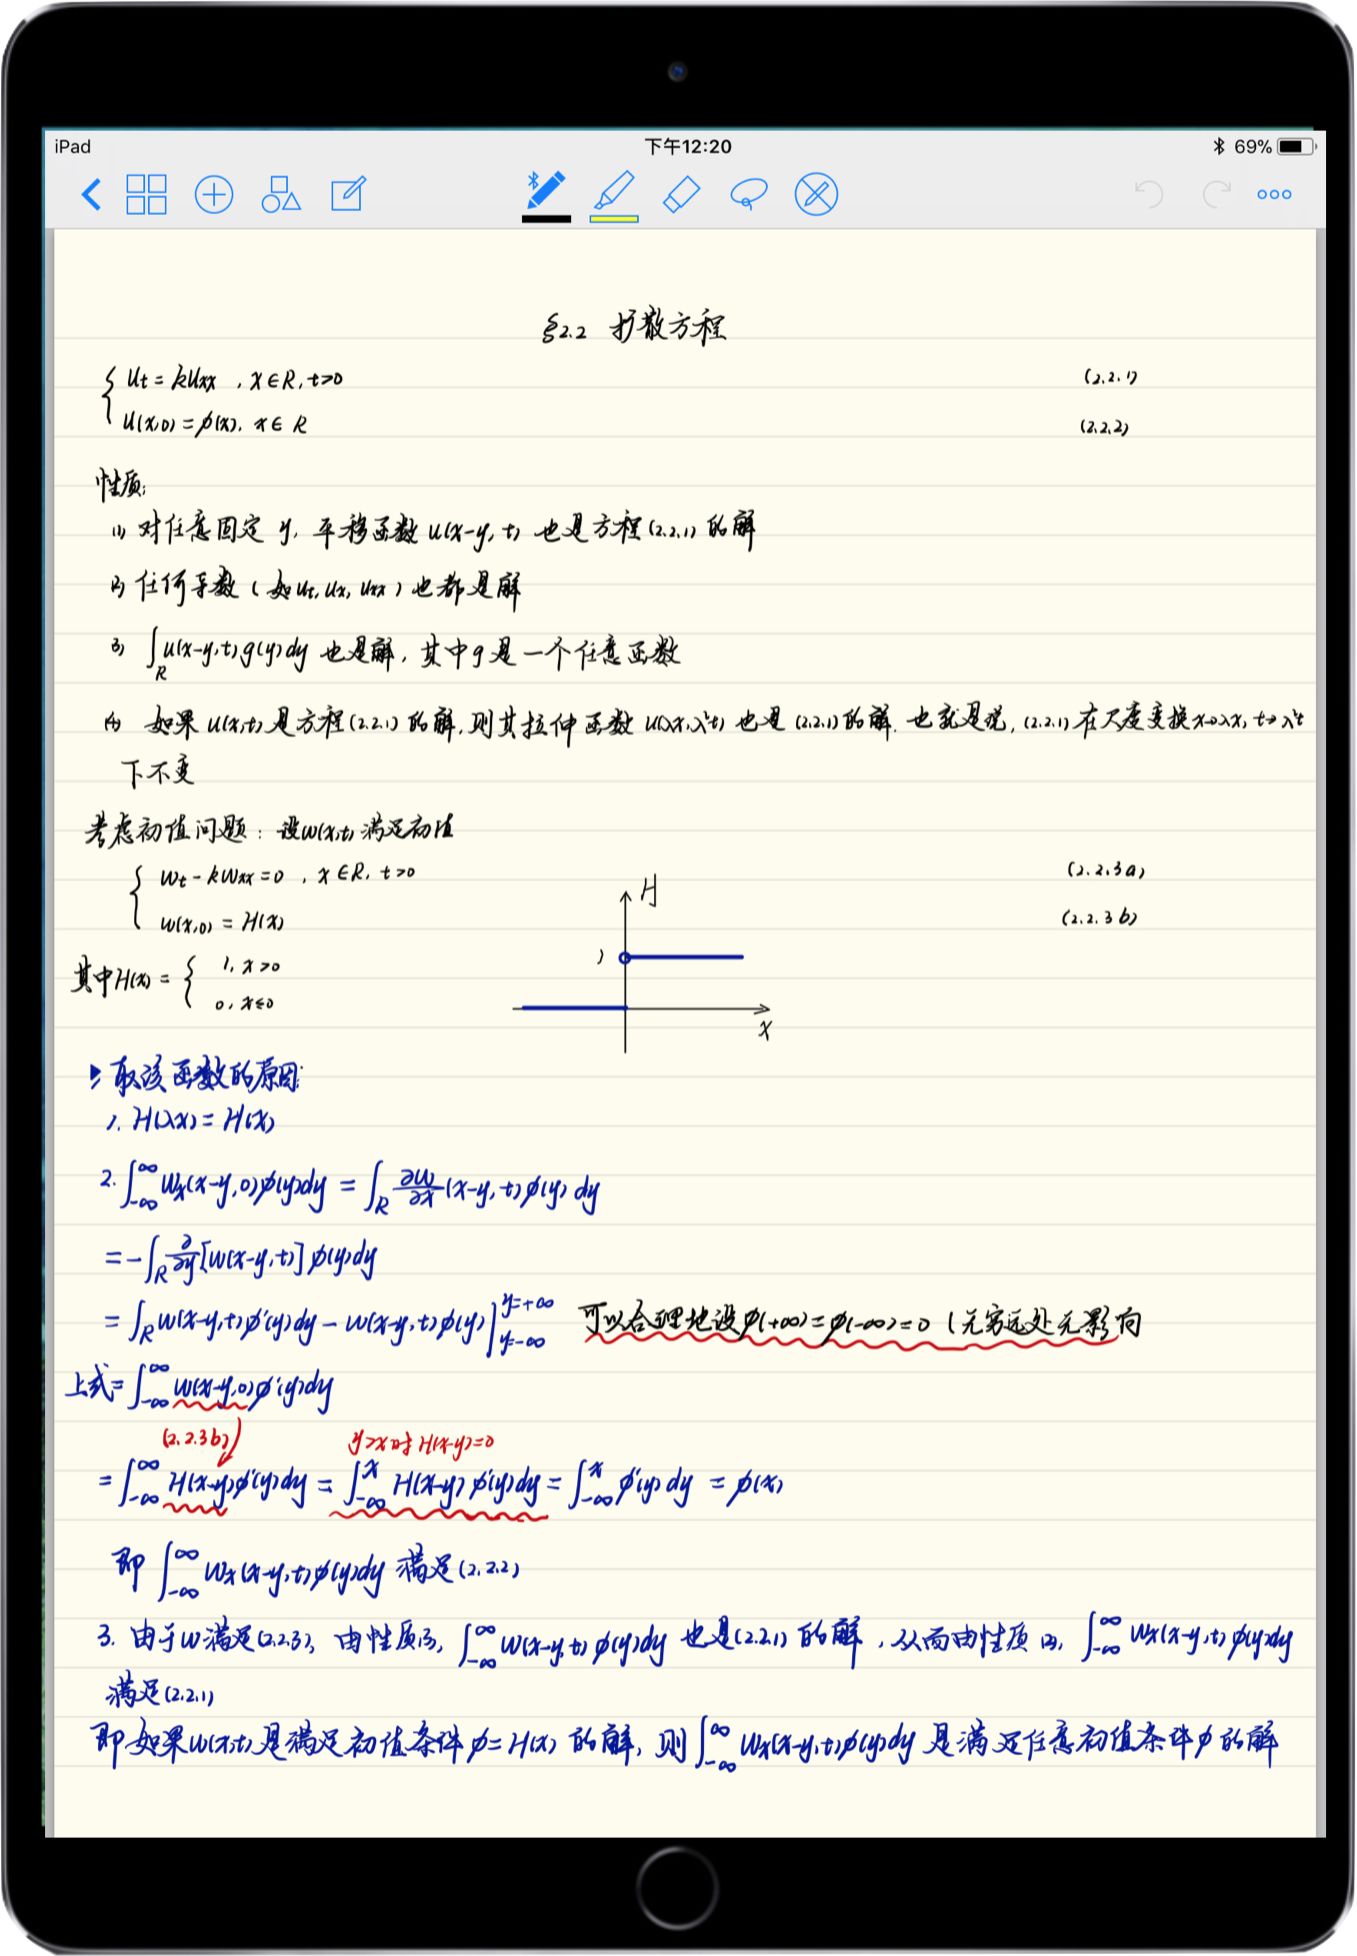 iPad 下午12:20 69%
§2.2 扩散方程
{ Ut = kUxx , x∈R, t>0 (2.2.1)
U(x,0) = φ(x), x∈R (2.2.2)
性质:
(1) 对任意固定 y, 平移函数 U(x-y, t) 也是方程(2.2.1)的解
(2) 任何导数(如Ut, Ux, Uxx)也都是解
(3) ∫_R U(x-y,t)g(y)dy 也是解, 其中g是一个任意函数
(4) 如果 U(x,t) 是方程(2.2.1)的解, 则其拉伸函数 U(λx,λ²t) 也是(2.2.1)的解. 也就是说, (2.2.1)在尺度变换x→λx, t→λ²t
下不变
考虑初值问题: 设w(x,t)满足初值
{ wt - kwxx = 0 , x∈R, t>0 (2.2.3a)
w(x,0) = H(x) (2.2.3b)
H
1
x
其中H(x) = { 1, x>0
0, x≤0
取该函数的原因:
1. H(λx) = H(x)
2. ∫_{-∞}^{∞} Wx(x-y,0)φ(y)dy = ∫_R ∂w/∂x (x-y,t)φ(y)dy
= -∫_R ∂/∂y[w(x-y,t)]φ(y)dy
= ∫_R w(x-y,t)φ'(y)dy - w(x-y,t)φ(y)|_{y=-∞}^{y=+∞} 可以合理地设φ(+∞)=φ(-∞)=0 (无穷远处无影响
上式= ∫_{-∞}^{∞} w(x-y,0)φ'(y)dy
(2.2.3b) y>x时H(x-y)=0
= ∫_{-∞}^{∞} H(x-y)φ'(y)dy = ∫_{-∞}^{x} H(x-y)φ'(y)dy = ∫_{-∞}^{x} φ'(y)dy = φ(x)
即 ∫_{-∞}^{∞} Wx(x-y,t)φ(y)dy 满足(2.2.2)
3. 由于w满足(2.2.3), 由性质(3), ∫_{-∞}^{∞} w(x-y,t)φ(y)dy 也是(2.2.1)的解, 从而由性质(2), ∫_{-∞}^{∞} Wx(x-y,t)φ(y)dy
满足(2.2.1)
即如果w(x,t)是满足初值条件φ=H(x)的解, 则∫_{-∞}^{∞} Wx(x-y,t)φ(y)dy 是满足任意初值条件φ的解